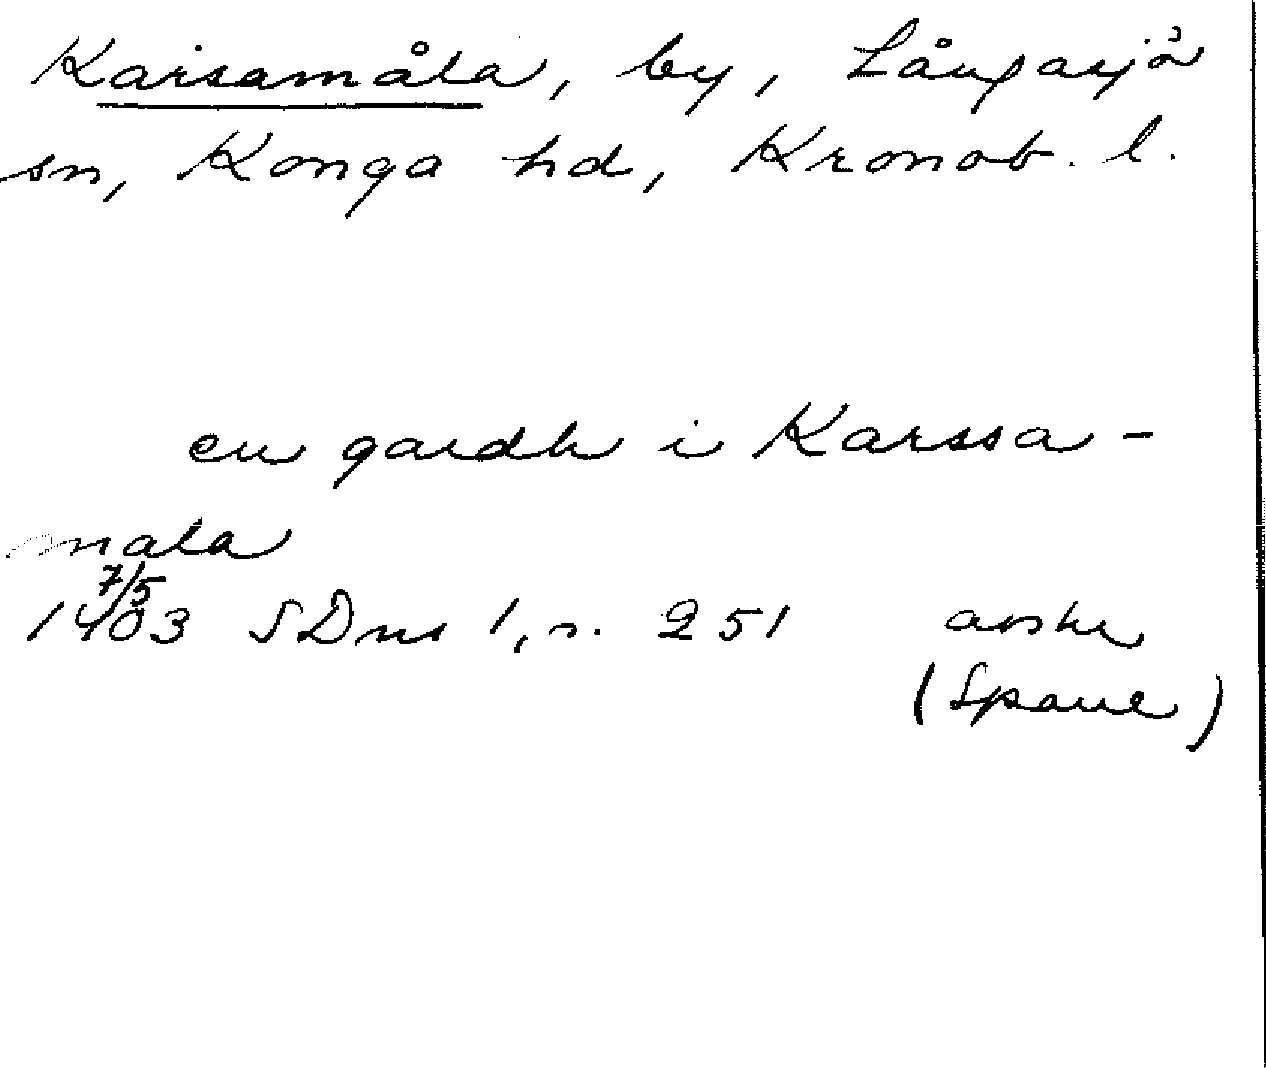 Karsamåla, by, Långasjö
sn, Konga hd, Kronob. l.
en gardh i Karssa-
mala
7/5
1403 SDns 1, s. 251 avskr
(Spane)